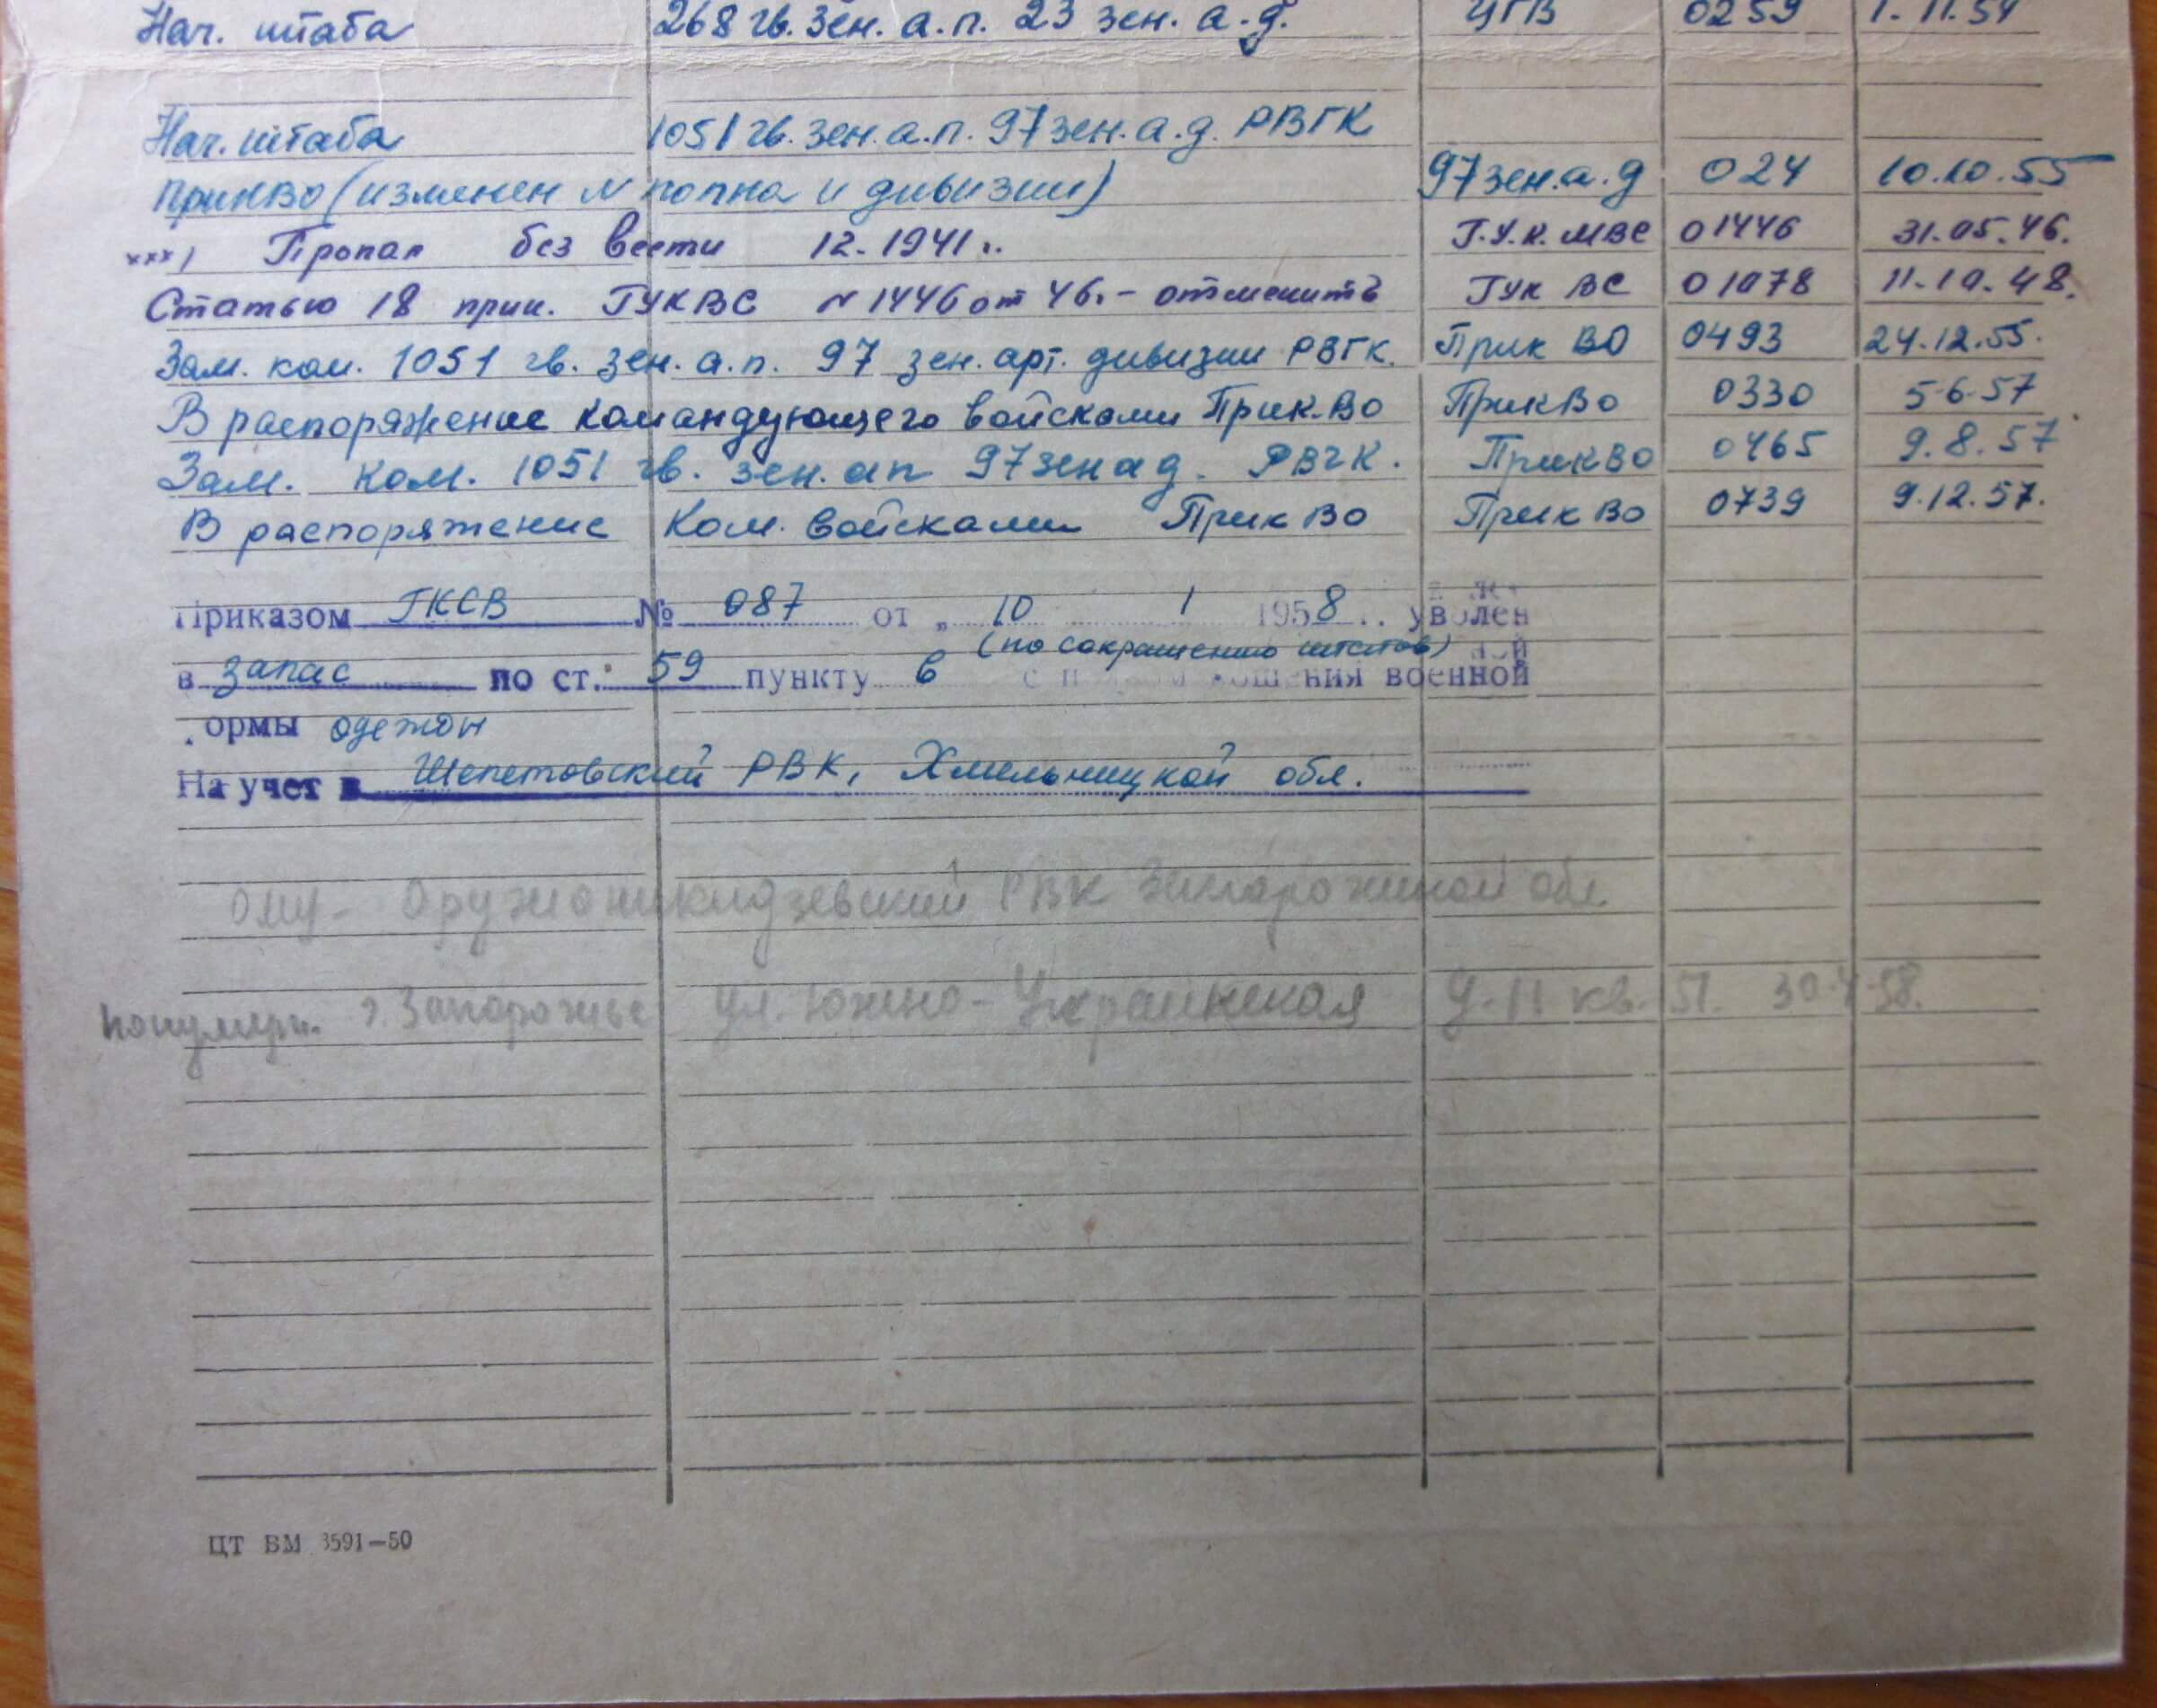 Нач. штаба 268 гв. зен. а.п. 23 зен. а.д. ЦГВ 0259 1.11.54
Нач. штаба 1051 гв. зен. а.п. 97 зен. а.д. РВГК
ПрикВО (изменен N полка и дивизии) 97 зен. а. д 024 10.10.55
xxx) Пропал без вести 12-1941 г. Г.У.К. МВС 01446 31.05.46.
Статью 18 прик. ГУКВС N 1446 от 46.- отменить ГУК ВС 01078 11-10.48.
Зам. ком. 1051 гв. зен. а.п. 97 зен. арт. дивизии РВГК. Прик ВО 0493 24.12.55.
В распоряжение командующего войсками Прик.Во ПрикВо 0330 5-6-57
Зам. ком. 1051 гв. зен. ап 97 зен а д. РВГК. Прик ВО 0465 9.8.57
В распоряжение Ком. войсками Прик Во Прик Во 0739 9.12.57.
Приказом ГКСВ № 087 от „ 10 1 1958 уволен
(по сокращению штатов)
в запас по ст. 59 пункту в ношения военной
формы одежды
На учет в Шепетовский РВК, Хмельницкой обл.
Орджоникидзевский РВК Запорожской обл.
г. Запорожье ул. Южно-Украинская д-11 кв. 51. 30.4.58.
ЦТ ВМ 3591—50